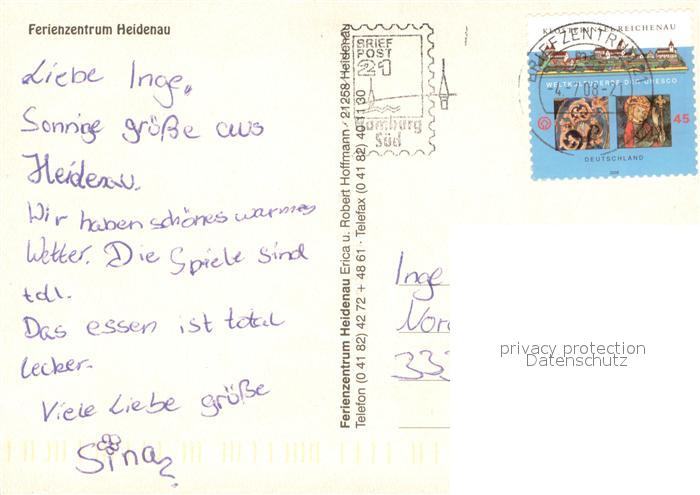 Ferienzentrum Heidenau
Liebe Inge,
Sonnige größe aus
Heidenau.
Wir haben schönes warmes
Wetter. Die Spiele sind
tdl.
Das essen ist total
lecker.
Viele Liebe größe
Sina
Ferienzentrum Heidenau Erica u. Robert Hoffmann · 21258 Heidenau
Telefon (0 41 82) 42 72 + 48 61 · Telefax (0 41 82) 40 11 30
BRIEF
POST
21
Hamburg
Süd
KLOSTERINSEL REICHENAU
BRIEFZENTRUM 21
WELTKULTURERBE DER UNESCO
-4.7.08-21
45
DEUTSCHLAND
2008
Inge
Nor
333
privacy protection
Datenschutz